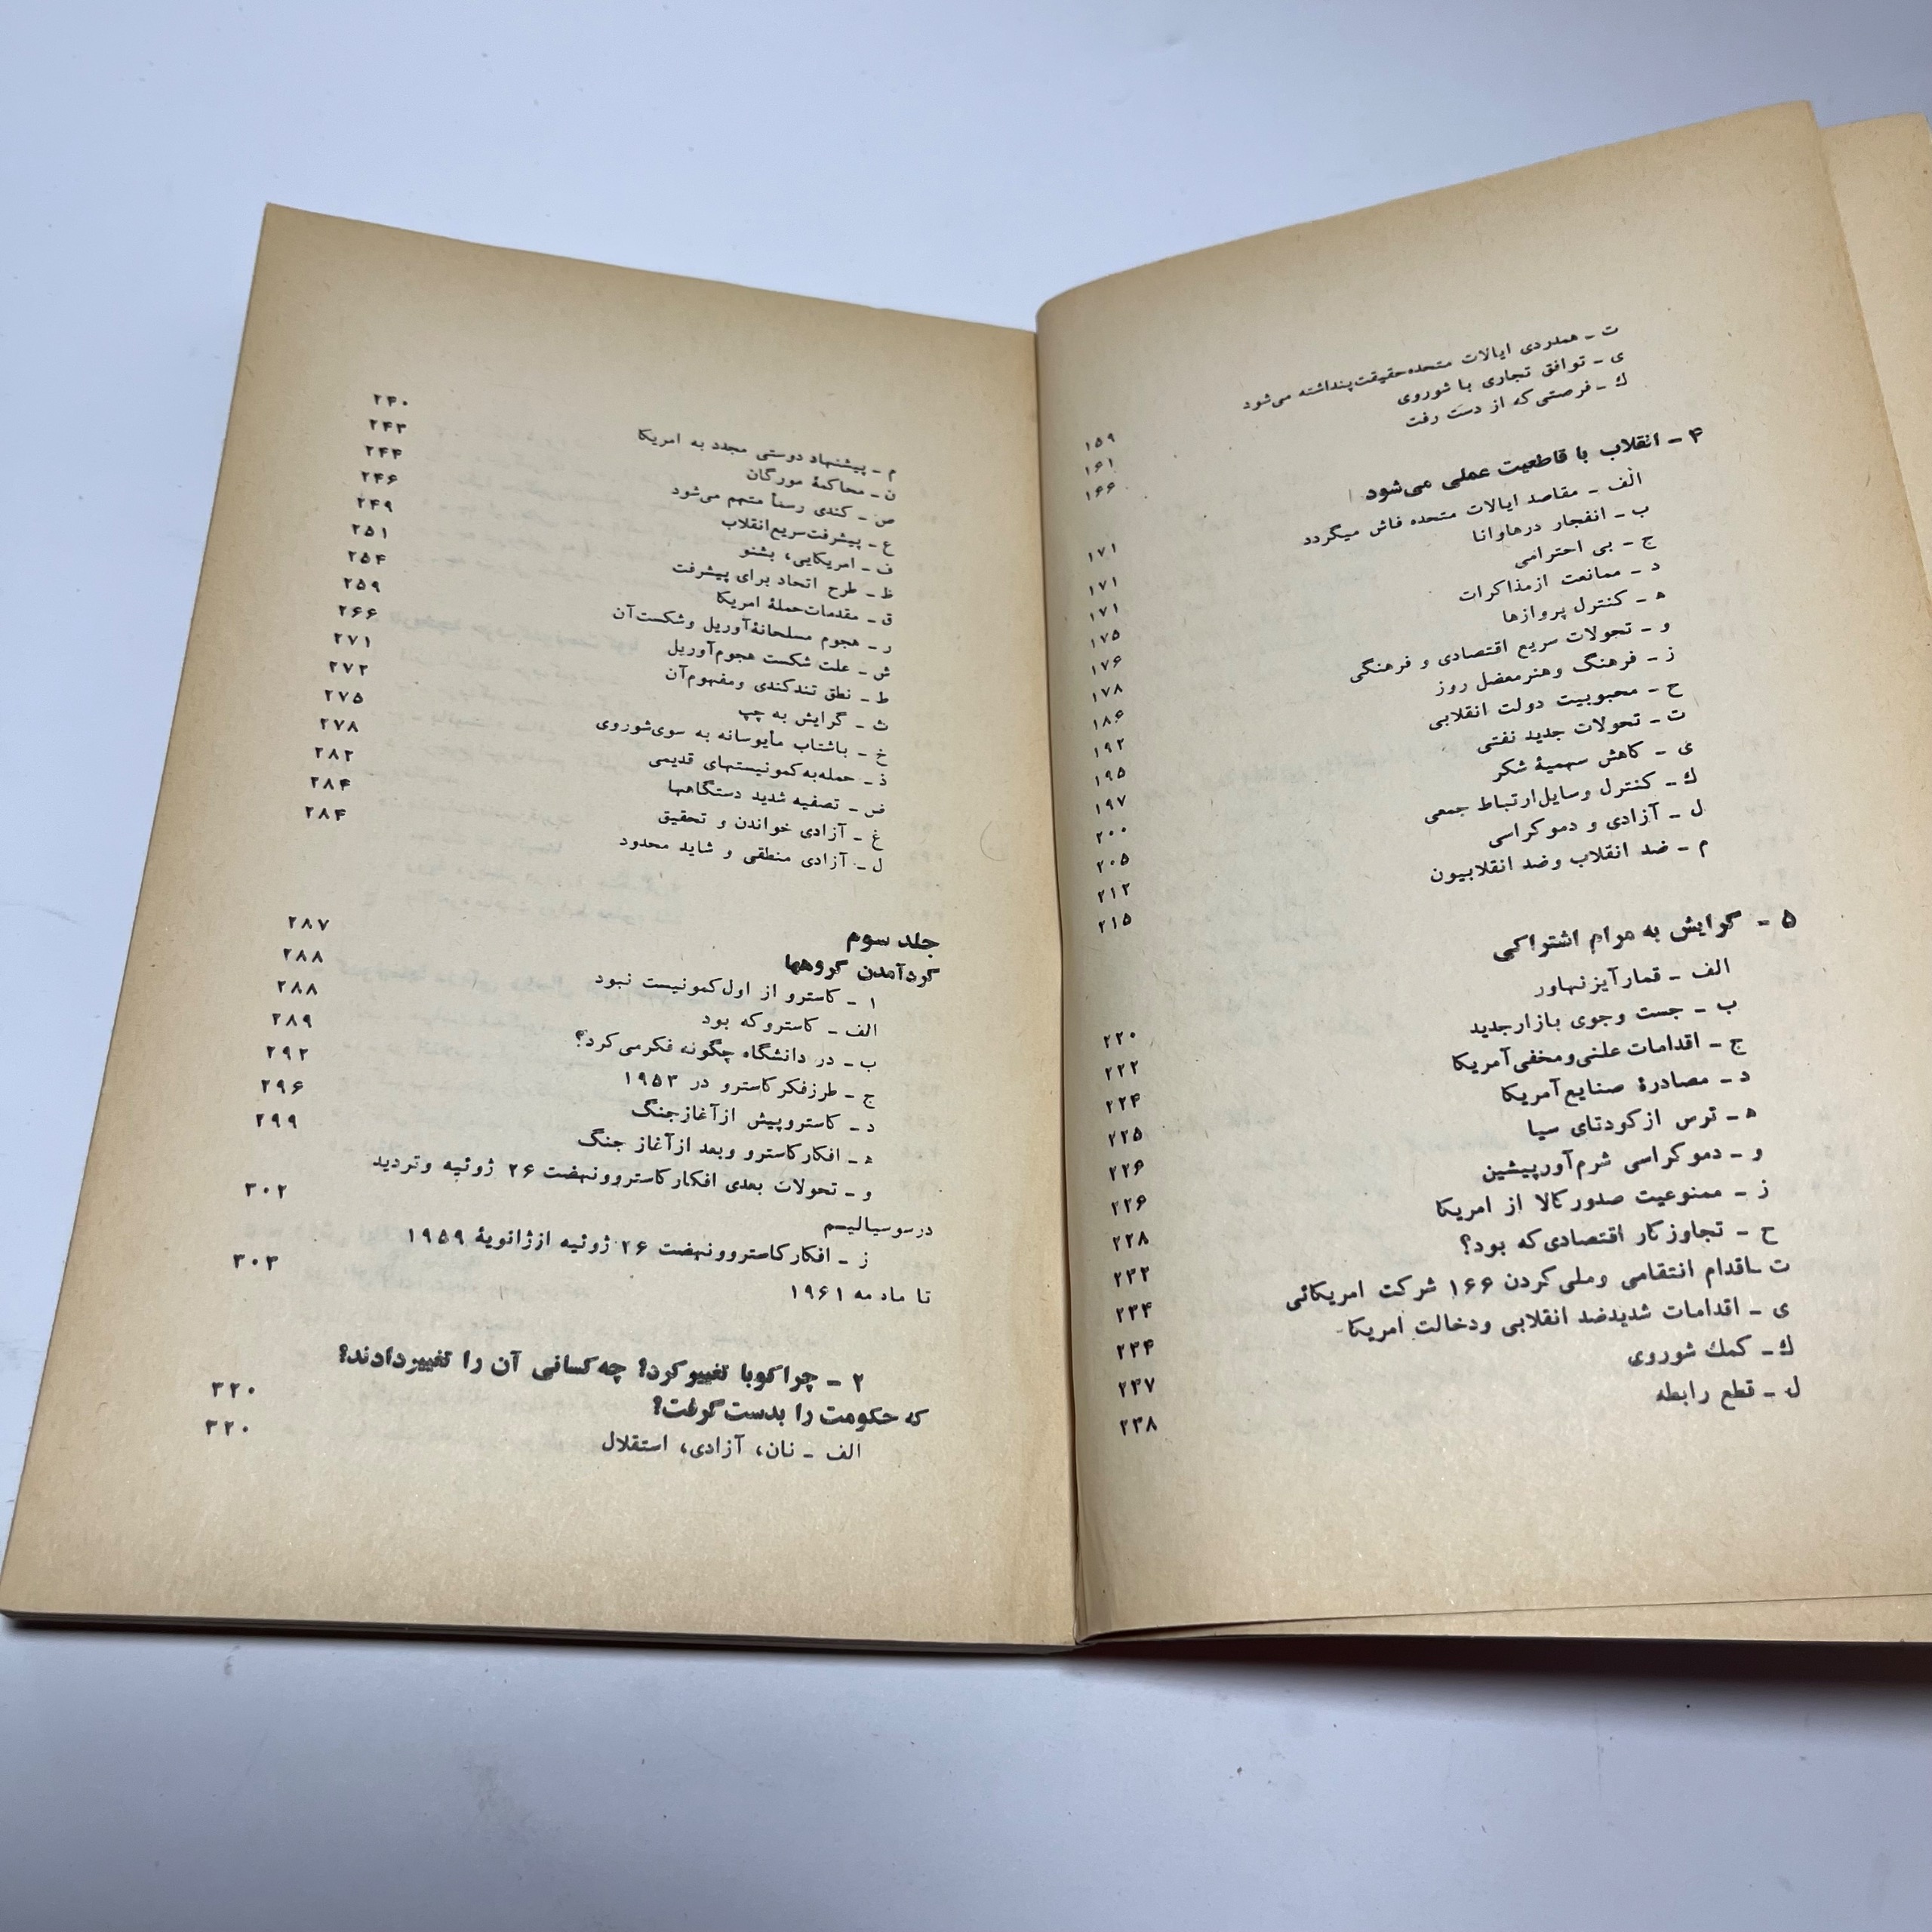 ت - همدردی ایالات متحده حقیقت پنداشته می‌شود ۱۵۹
ی - توافق تجاری با شوروی ۱۶۱
ك - فرصتی که از دست رفت ۱۶۶
۴ - انقلاب با قاطعیت عملی می‌شود ۱۷۱
الف - مقاصد ایالات متحده فاش میگردد ۱۷۱
ب - انفجار درهاوانا ۱۷۱
ج - بی احترامی ۱۷۵
د - ممانعت ازمذاکرات ۱۷۶
ه - کنترل پروازها ۱۷۸
و - تحولات سریع اقتصادی و فرهنگی ۱۸۶
ز - فرهنگ وهنرمعضل روز ۱۹۲
ح - محبوبیت دولت انقلابی ۱۹۵
ت - تحولات جدید نفتی ۱۹۷
ی - کاهش سهمیۀ شکر ۲۰۰
ك - کنترل وسایل ارتباط جمعی ۲۰۵
ل - آزادی و دموکراسی ۲۱۲
م - ضد انقلاب وضد انقلابیون ۲۱۵
۵ - گرایش به مرام اشتراکی
الف - قمار آیزنهاور ۲۲۰
ب - جست وجوی بازارجدید ۲۲۲
ج - اقدامات علنی ومخفی آمریکا ۲۲۴
د - مصادرۀ صنایع آمریکا ۲۲۵
ه - ترس ازکودتای سیا ۲۲۶
و - دموکراسی شرم‌آورپیشین ۲۲۶
ز - ممنوعیت صدورکالا از امریکا ۲۲۸
ح - تجاوزکار اقتصادی که بود؟ ۲۳۲
ت - اقدام انتقامی وملی کردن ۱۶۶ شرکت امریکائی ۲۳۴
ی - اقدامات شدیدضد انقلابی ودخالت امریکا ۲۳۴
ك - کمك شوروی ۲۳۷
ل - قطع رابطه ۲۳۸
م - پیشنهاد دوستی مجدد به امریکا ۲۴۰
ن - محاکمۀ مورگان ۲۴۳
ص - کندی رسماً متهم می‌شود ۲۴۴
ع - پیشرفت سریع انقلاب ۲۴۶
ف - امریکایی، بشنو ۲۴۹
ظ - طرح اتحاد برای پیشرفت ۲۵۱
ق - مقدمات حملۀ امریکا ۲۵۴
ر - هجوم مسلحانۀ آوریل وشکست آن ۲۵۹
ش - علت شکست هجوم آوریل ۲۶۶
ط - نطق تندکندی ومفهوم آن ۲۷۱
ث - گرایش به چپ ۲۷۲
خ - باشتاب مأیوسانه به سوی شوروی ۲۷۵
ذ - حمله به کمونیستهای قدیمی ۲۷۸
ض - تصفیه شدید دستگاهها ۲۸۲
غ - آزادی خواندن و تحقیق ۲۸۴
ل - آزادی منطقی و شاید محدود ۲۸۴
جلد سوم ۲۸۷
گردآمدن گروهها ۲۸۸
۱ - کاسترو از اول کمونیست نبود ۲۸۸
الف - کاستروکه بود ۲۸۹
ب - در دانشگاه چگونه فکرمی‌کرد؟ ۲۹۲
ج - طرزفکرکاسترو در ۱۹۵۳ ۲۹۶
د - کاستروپیش ازآغازجنگ ۲۹۹
ه - افکارکاسترو وبعد ازآغاز جنگ
و - تحولات بعدی افکارکاسترو‌ونهضت ۲۶ ژوئیه وتردید ۳۰۲
درسوسیالیسم
ز - افکارکاسترو‌ونهضت ۲۶ ژوئیه ازژانویۀ ۱۹۵۹ ۳۰۳
تا ماه مه ۱۹۶۱
۲ - چراکوبا تغییرکرد؟ چه کسانی آن را تغییردادند؟ ۳۲۰
که حکومت را بدست گرفت؟ ۳۲۰
الف - نان، آزادی، استقلال